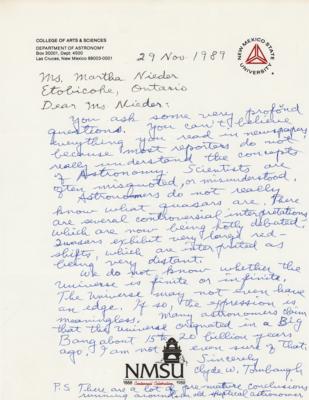 COLLEGE OF ARTS & SCIENCES
DEPARTMENT OF ASTRONOMY
Box 30001, Dept. 4500
Las Cruces, New Mexico 88003-0001
NEW MEXICO STATE UNIVERSITY
29 Nov 1989
Ms. Martha Nieder
Etobicoke, Ontario
Dear Ms. Nieder:
You ask some very profound
questions. You can't believe
everything you read in newspapers
because most reporters do not
really understand the concepts
of Astronomy. Scientists are
often misquoted, or misunderstood.
Astronomers do not really
know what quasars are. There
are several controversial interpretations
which are now being hotly debated.
Quasars exhibit very large red-
shifts, which are interpreted as
being very distant.
We do not know whether the
Universe is finite or infinite.
The Universe may not even have
an edge. If so, the expression is
meaningless. Many astronomers claim
that the Universe originated in a Big
Bang about 15 to 20 billion years
ago. I am not even sure of that.
Sincerely
Clyde W. Tombaugh
NMSU
1888 Centennial Celebration 1988
P.S. There are a lot of pre-mature conclusions
running around. an old skeptical astronomer